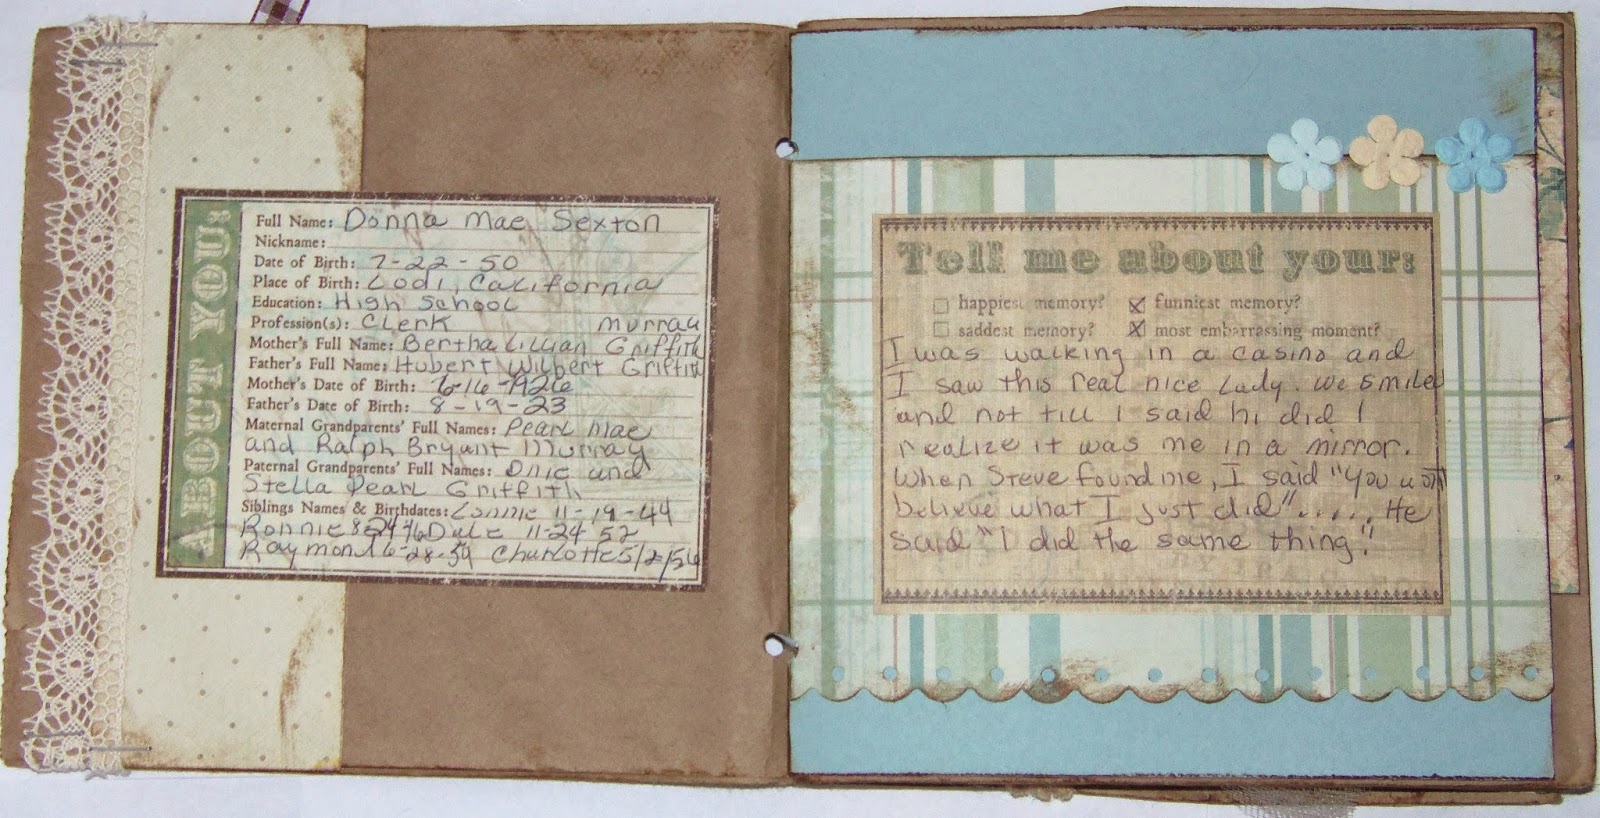 ABOUT YOU:
Full Name: Donna Mae Sexton
Nickname:
Date of Birth: 7-22-50
Place of Birth: Lodi, California
Education: High School
Profession(s): Clerk Murray
Mother's Full Name: Bertha Lillian Griffith
Father's Full Name: Hubert Wilbert Griffith
Mother's Date of Birth: 6-16-1926
Father's Date of Birth: 8-19-23
Maternal Grandparents' Full Names: Pearl Mae
and Ralph Bryant Murray
Paternal Grandparents' Full Names: and
Stella Pearl Griffith
Siblings Names & Birthdates: 11-19-44
Ronnie Dale 11-24-52
Raymond Charlotte 5/2/56
Tell me about your:
happiest memory? funniest memory?
saddest memory? most embarrassing moment?
I was walking in a casino and
I saw this real nice Lady. We smiled
and not till I said hi did I
realize it was me in a mirror.
When Steve found me, I said "You
believe what I just did"..... He
said "I did the same thing."